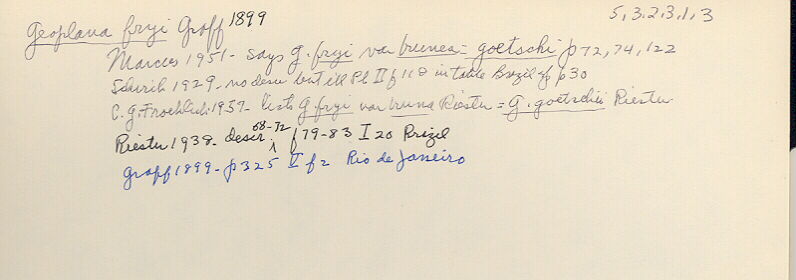 5,3.2,3,1,3
Geoplana fryi Graff 1899
Marcus 1951 - says G. fryi var brunea = goetschi p 72, 74, 122
1929 - no descr but ill Pl II f 118 in table Brazil p 30
C.G. Froehlich 1957 - lists G fryi var bruna Riester = G. goetschi Riester
68-72
Riester 1938 - descr f 79-83 I 20 Brazil
Graff 1899 - p 325 V f 2 Rio de Janeiro